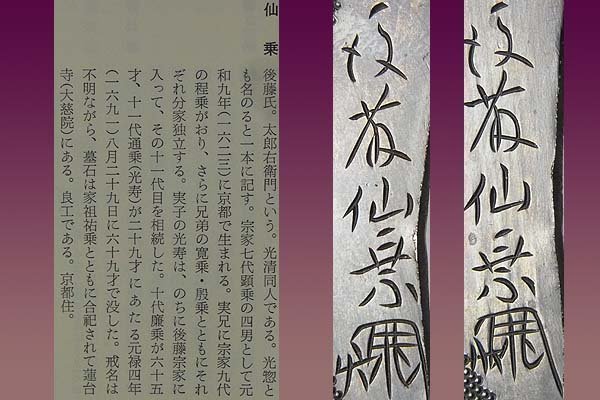 仙乗
後藤氏。太郎右衛門という。光清同人である。光惣と
も名のると一本に記す。宗家七代顕乗の四男として元
和九年(一六二三)に京都で生まれる。実兄に宗家九代
の程乗がおり、さらに兄弟の寛乗・殷乗とともにそれ
ぞれ分家独立する。実子の光寿は、のちに後藤宗家に
入って、その十一代目を相続した。十代廉乗が六十五
才、十一代通乗(光寿)が二十九才にあたる元禄四年
(一六九一)八月二十九日に六十九才で没した。戒名は
不明ながら、墓石は家祖祐乗とともに合祀されて蓮台
寺(大慈院)にある。良工である。京都住。
後藤仙乗
後藤仙乗